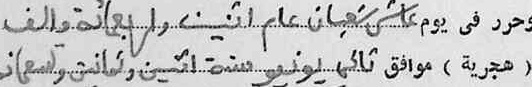 وحرر فى يوم عاشر شعبان عام اثنين واربعمائة والف
( هجرية ) موافق ثانى يونيو سنة اثنين وثمانين وتسعمائة